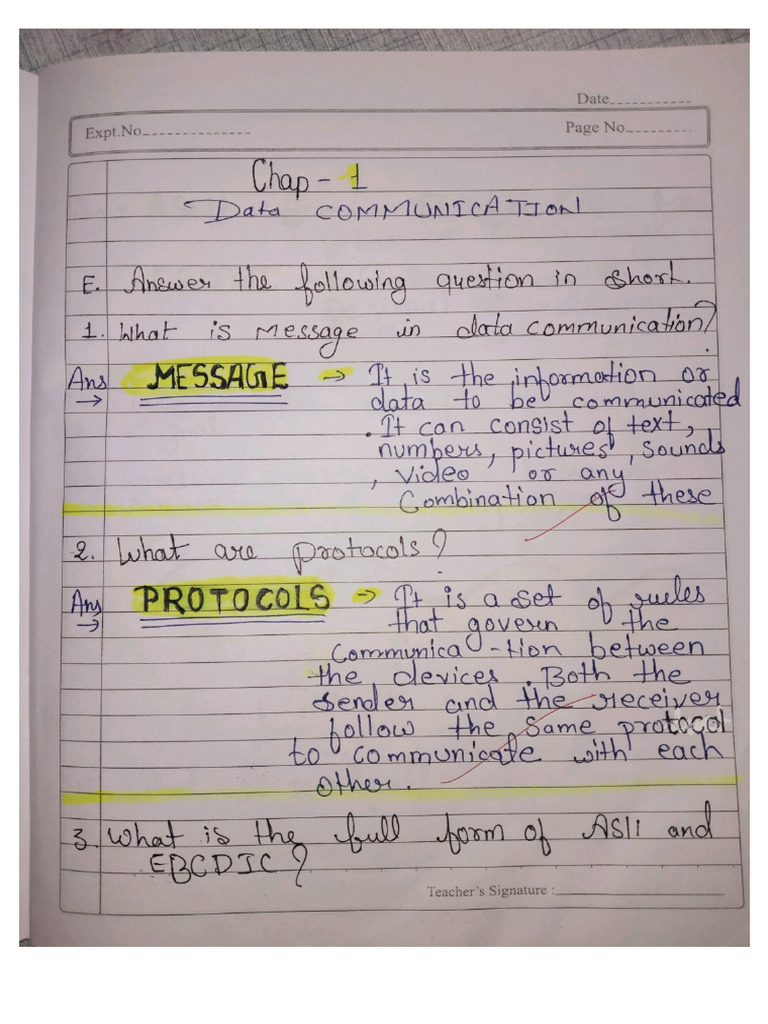 Date
Expt.No.
Page No.
Chap - 1
Data COMMUNICATION
E. Answer the following question in short.
1. What is Message in data communication?
Ans → MESSAGE → It is the information or
data to be communicated
. It can consist of text,
numbers, pictures, sounds
, video or any
Combination of these
2. What are protocols?
Ans → PROTOCOLS → It is a set of rules
that govern the
Communica-tion between
the devices. Both the
sender and the receiver
follow the same protocol
to communicate with each
other.
3. What is the full form of ASII and
EBCDIC?
Teacher's Signature :